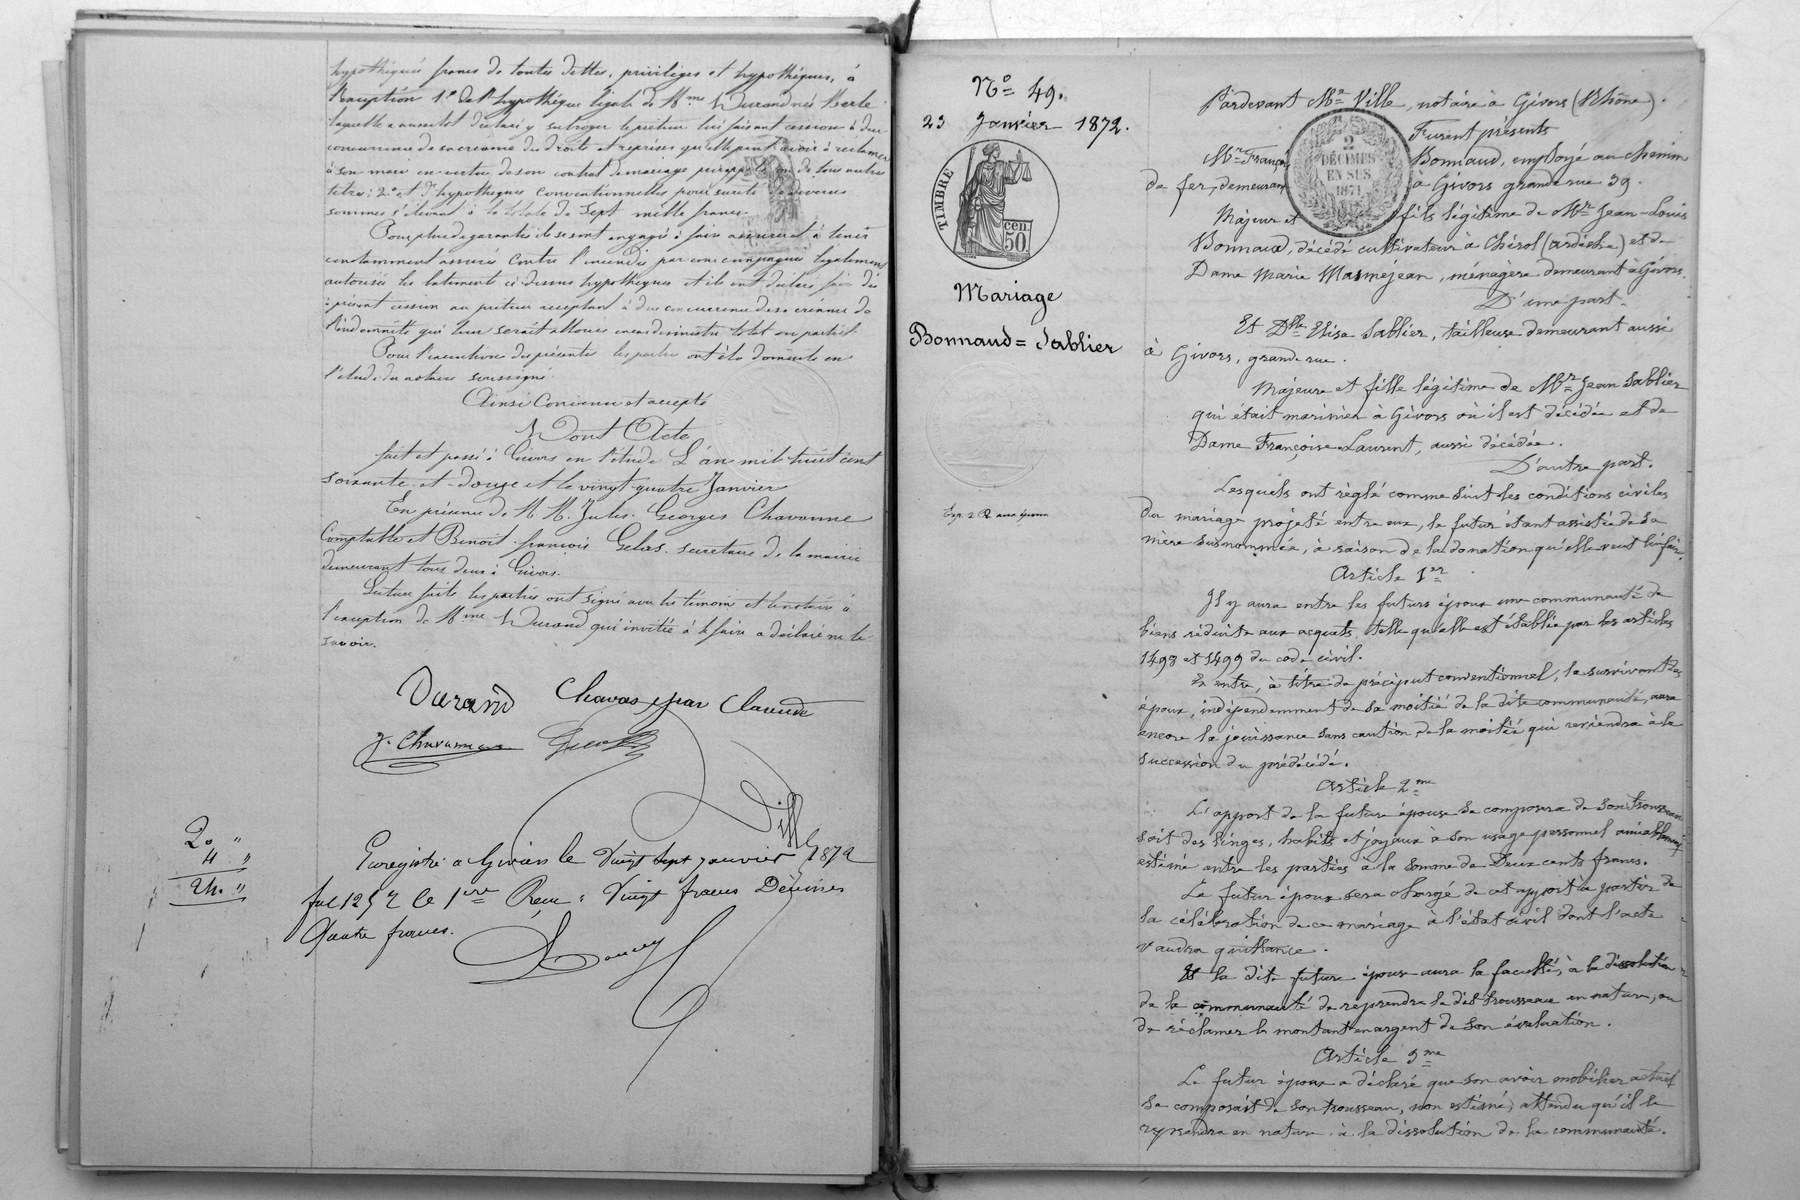 hypothéqués francs de toutes dettes, privilèges et hypothèques, à
l'exception 1° de l'hypothèque légale de Mme Durand née Merle
laquelle a aussitôt déclaré y subroger le prêteur lui faisant cession à due
concurrence de sa créance des droits et reprises qu'elle peut avoir à réclamer
à son mari en vertu de son contrat de mariage de tous autres
titres; 2° et d'hypothèques conventionnelles pour sureté de diverses
sommes s'élevant à la totale de sept mille francs.
Pour plus de garantie ils se sont engagés à faire assurer et à tenir
constamment assurés contre l'incendie par une compagnie légalement
autorisée les batiments ci dessus hypothéqués et ils ont déclaré faire dès
à présent cession au prêteur acceptant à due concurrence de sa créance de
l'indemnité qui leur serait allouée en cas de sinistre total ou partiel.
Pour l'exécution des présentes les parties ont élu domicile en
l'étude du notaire soussigné.
Ainsi Convenu et accepté
Dont Acte
fait et passé à Givors en l'étude L'an mil huit cent
soixante-et-douze et le vingt-quatre Janvier
En présence de M.M. Jules-Georges Chavanne
Comptable et Benoit-françois Gelas secrétaire de la mairie
demeurant tous deux à Givors.
Lecture faite les parties ont signé avec les témoins et le notaire à
l'exception de Mme Durand qui invitée à le faire a déclaré ne le
savoir.
Durand Chavas Claude
J. Chavanne
Ville
20 "
4 "
24. "
Enregistré à Givors le Vingt sept janvier 1872
fol 125 R Ce 1ere Reçu: Vingt francs Décimes
Quatre francs.
No 49.
23 Janvier 1872.
TIMBRE
50 cen.
Mariage
Bonnaud = Sablier
Exp.
2
DÉCIMES
EN SUS
1871
Pardevant Me Ville, notaire à Givors (Rhône).
Furent présents
Mr Franç Bonnaud, employé au chemin
de fer, demeurant à Givors grande rue 39.
Majeur et fils légitime de Mr Jean-Louis
Bonnaud, décédé cultivateur à Chérol (ardèche) et de
Dame Marie Masmejean, ménagère demeurant à Givors.
D'une part.
Et Dlle Elisa Sablier, tailleuse demeurant aussi
à Givors, grande rue.
Majeure et fille légitime de Mr Jean Sablier
qui était marinier à Givors où il est décédé et de
Dame Françoise Laurent, aussi décédée.
D'autre part.
Lesquels ont réglé comme suit les conditions civiles
du mariage projeté entre eux, le futur étant assisté de sa
mère susnommée, à raison de la donation qu'elle veut lui faire.
Article 1er
Il y aura entre les futurs époux une communauté de
biens réduite aux acquets, telle qu'elle est établie par les articles
1498 et 1499 du code civil.
En outre, à titre de préciput conventionnel, le survivant des
époux, indépendemment de sa moitié de la dite communauté, aura
encore la jouissance sans caution de la moitié qui reviendra à la
succession du prédécédé.
Article 2me
L'apport de la future épouse se composera de son trousseau
soit des linges, habits et joyaux à son usage personnel amiablement
estimé entre les parties à la somme de Deux cents francs.
Le futur époux sera chargé de cet apport à partir de
la célébration de ce mariage à l'état civil dont l'acte
vaudra quittance.
Et la dite future épouse aura la faculté, à la dissolution
de la communauté de reprendre le dit trousseau en nature, ou
de réclamer le montant en argent de son évaluation.
Article 3me
Le futur époux a déclaré que son avoir mobilier actuel
se composait de son trousseau, non estimé, attendu qu'il le
reprendra en nature à la dissolution de la communauté.